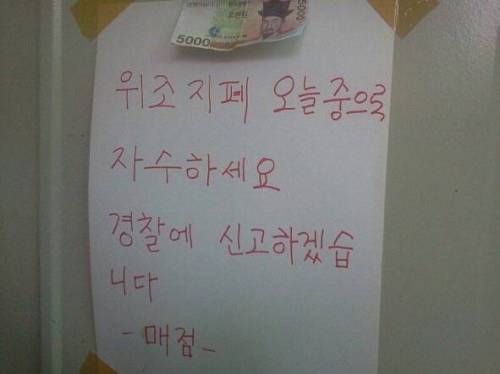 5000
5000
위조지폐 오늘중으로
자수하세요
경찰에 신고하겠습
니다
- 매점 -